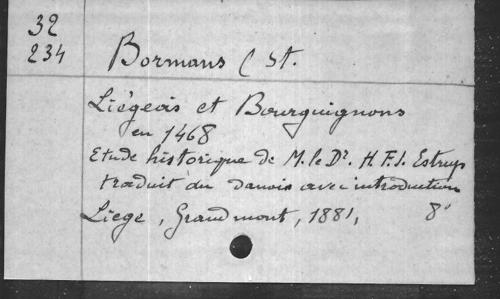 32
234
Bormans (St.
Liégeois et Bourguignons
en 1468
Etude historique de M. le Dr. H. F. J. Estrup
traduit du danois avec introduction
Liege, Grandmont, 1881, 8°